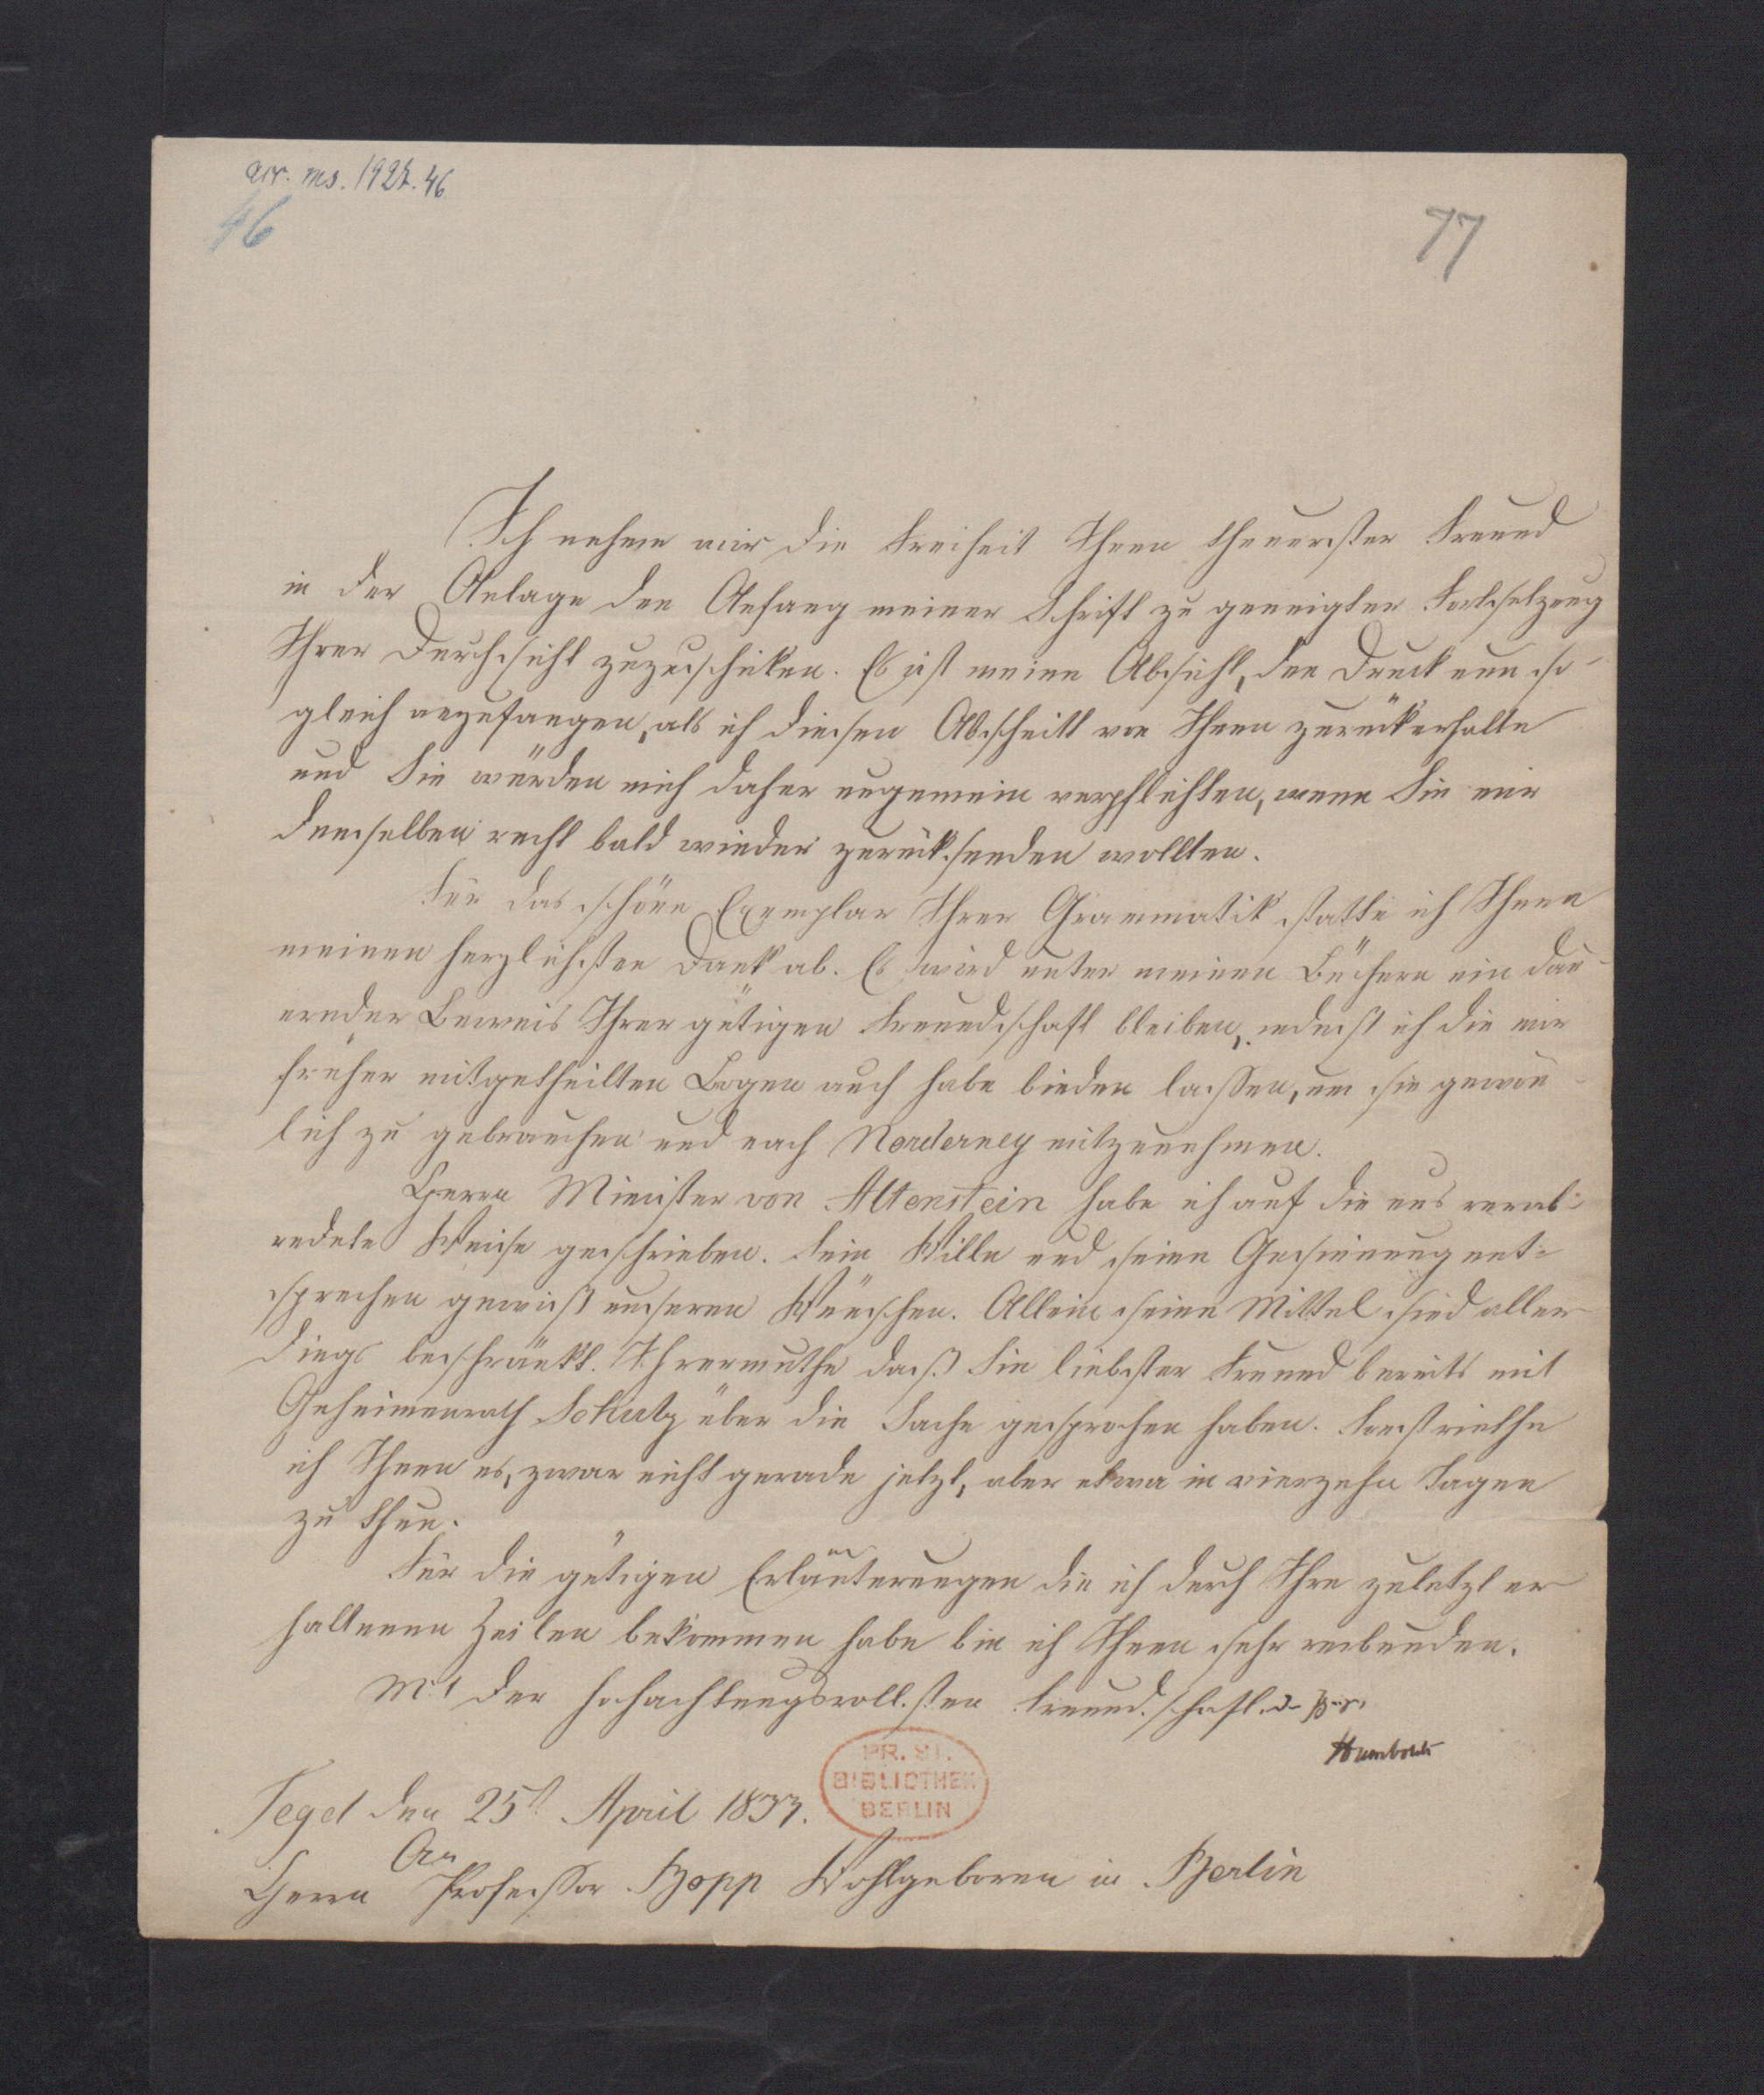 acc. ms. 1927. 46
46
77
Ich nehme mir die Freiheit Ihnen theuerster Freund
in der Anlage den Anfang meiner Schrift zu geneigter Fortsetzung
Ihrer Durchsicht zuzuschicken. Es ist meine Absicht, den Druck nun so-
gleich anzufangen, als ich diesen Abschnitt von Ihnen zurückerhalte
und Sie würden mich daher ungemein verpflichten, wenn Sie mir
denselben recht bald wieder zurücksenden wollten.
Für das schöne Exemplar Ihrer Grammatik statte ich Ihnen
meinen herzlichsten Dank ab. Es wird unter meinen Büchern ein dau-
ernder Beweis Ihrer gütigen Freundschaft bleiben, indeß ich die mir
früher mitgetheilten Bogen auch habe binden lassen, um sie gewön-
lich zu gebrauchen und nach Norderney mitzunehmen.
Herrn Minister von Altenstein habe ich auf die uns verab-
redete Weise geschrieben. Sein Wille und seine Gesinnung ent-
sprechen gewiß unseren Wünschen. Allein seine Mittel sind aller-
dings beschränkt. Ich vermuthe daß Sie liebster Freund bereits mit
Geheimenrath Schulz über die Sache gesprochen haben. Sonst riethe
ich Ihnen es, zwar nicht gerade jetzt, aber etwa in vierzehn Tagen
zu thun.
Für die gütigen Erläuterungen die ich durch Ihre zuletzt er
haltenen Zeilen bekommen habe bin ich Ihnen sehr verbunden.
Mit der hochachtungsvollsten Freundschaft der Ihrige
Humboldt
PR. ST.
BIBLIOTHEK
BERLIN
Tegel den 25t April 1833.
An
Herrn Professor Bopp Wohlgeboren in Berlin